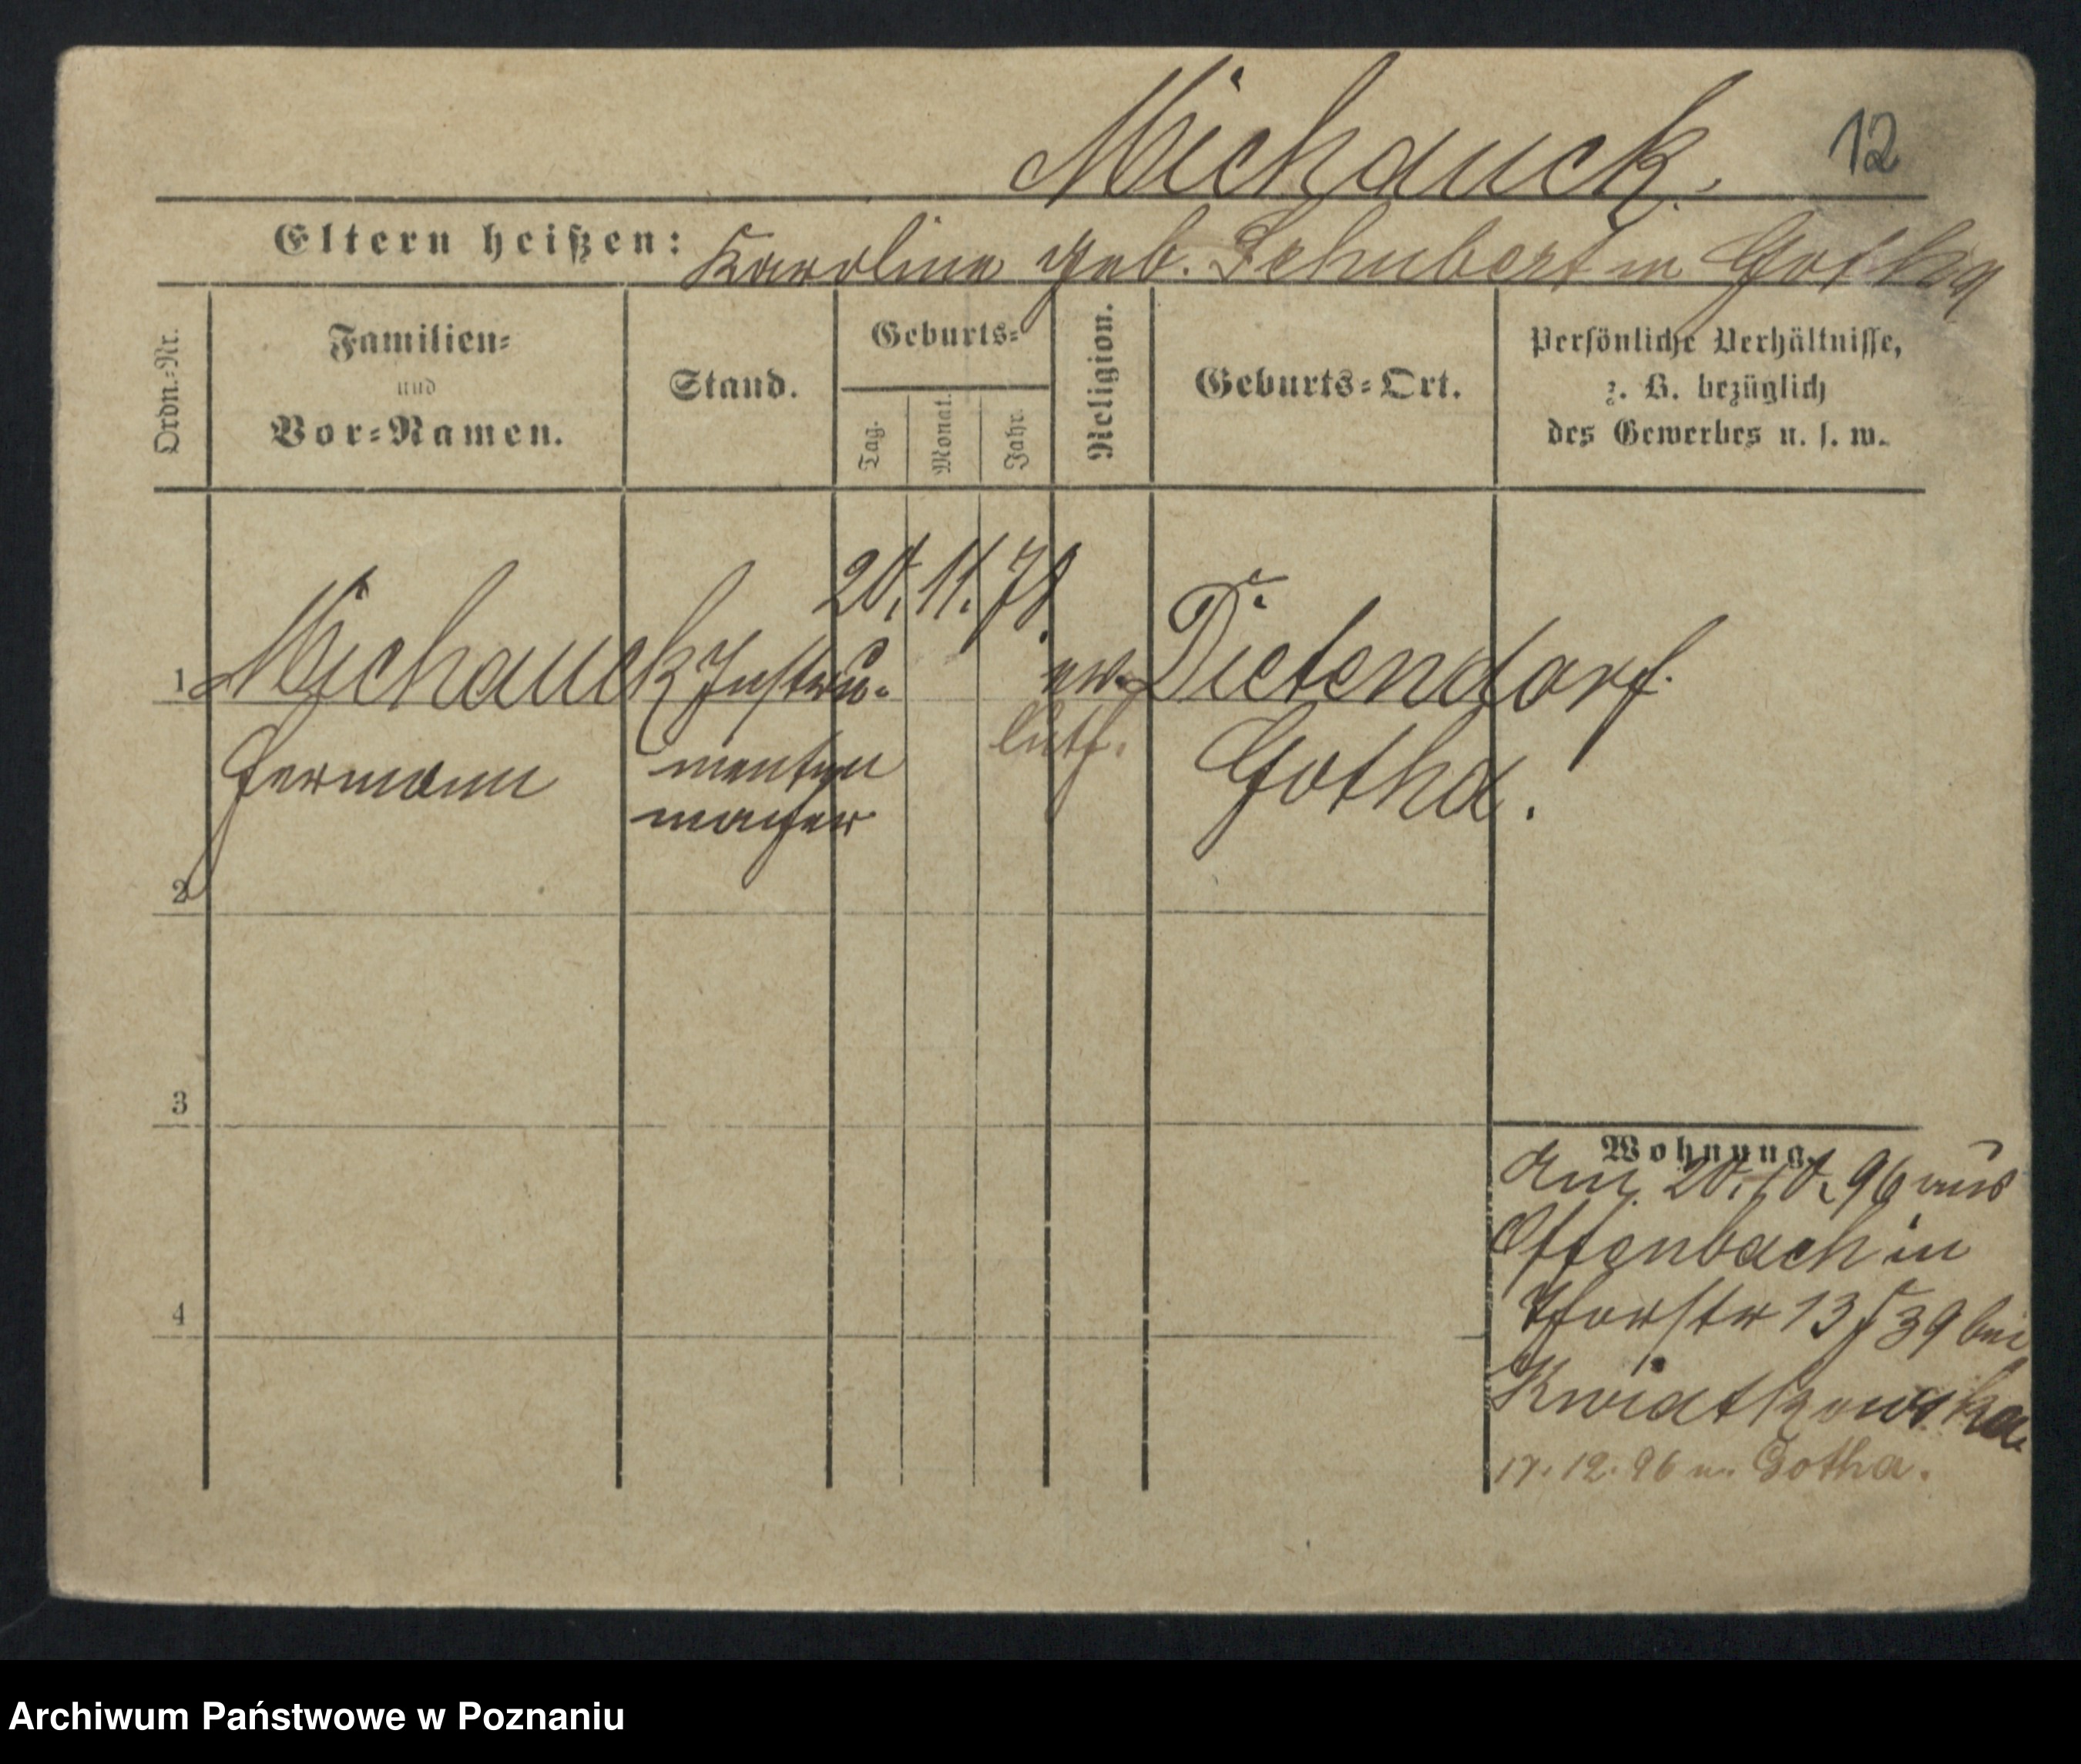 Michauck.
12
Eltern heißen: Karoline geb. Schubert in Gotha
Ordn.-Nr.
Familien-
und
Vor-Namen.
Stand.
Geburts-
Tag.
Monat.
Jahr.
Religion.
Geburts-Ort.
Persönliche Verhältnisse,
z. B. bezüglich
des Gewerbes u. s. w.
20. 11. 71.
1 Michauck Instru- ev. Dietendorf.
Hermann menten luth. Gotha.
macher
2
3
4
Wohnung.
Am 20. 10. 96 aus
Offenbach in
13 39 bei
Kwiatkowska.
17. 12. 96 n. Gotha.
Archiwum Państwowe w Poznaniu